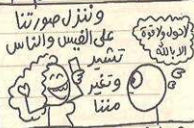 وننزل صورتنا
على الفيس والناس
تشير
وتغير
مننا
لاحول ولا قوة
الا بالله